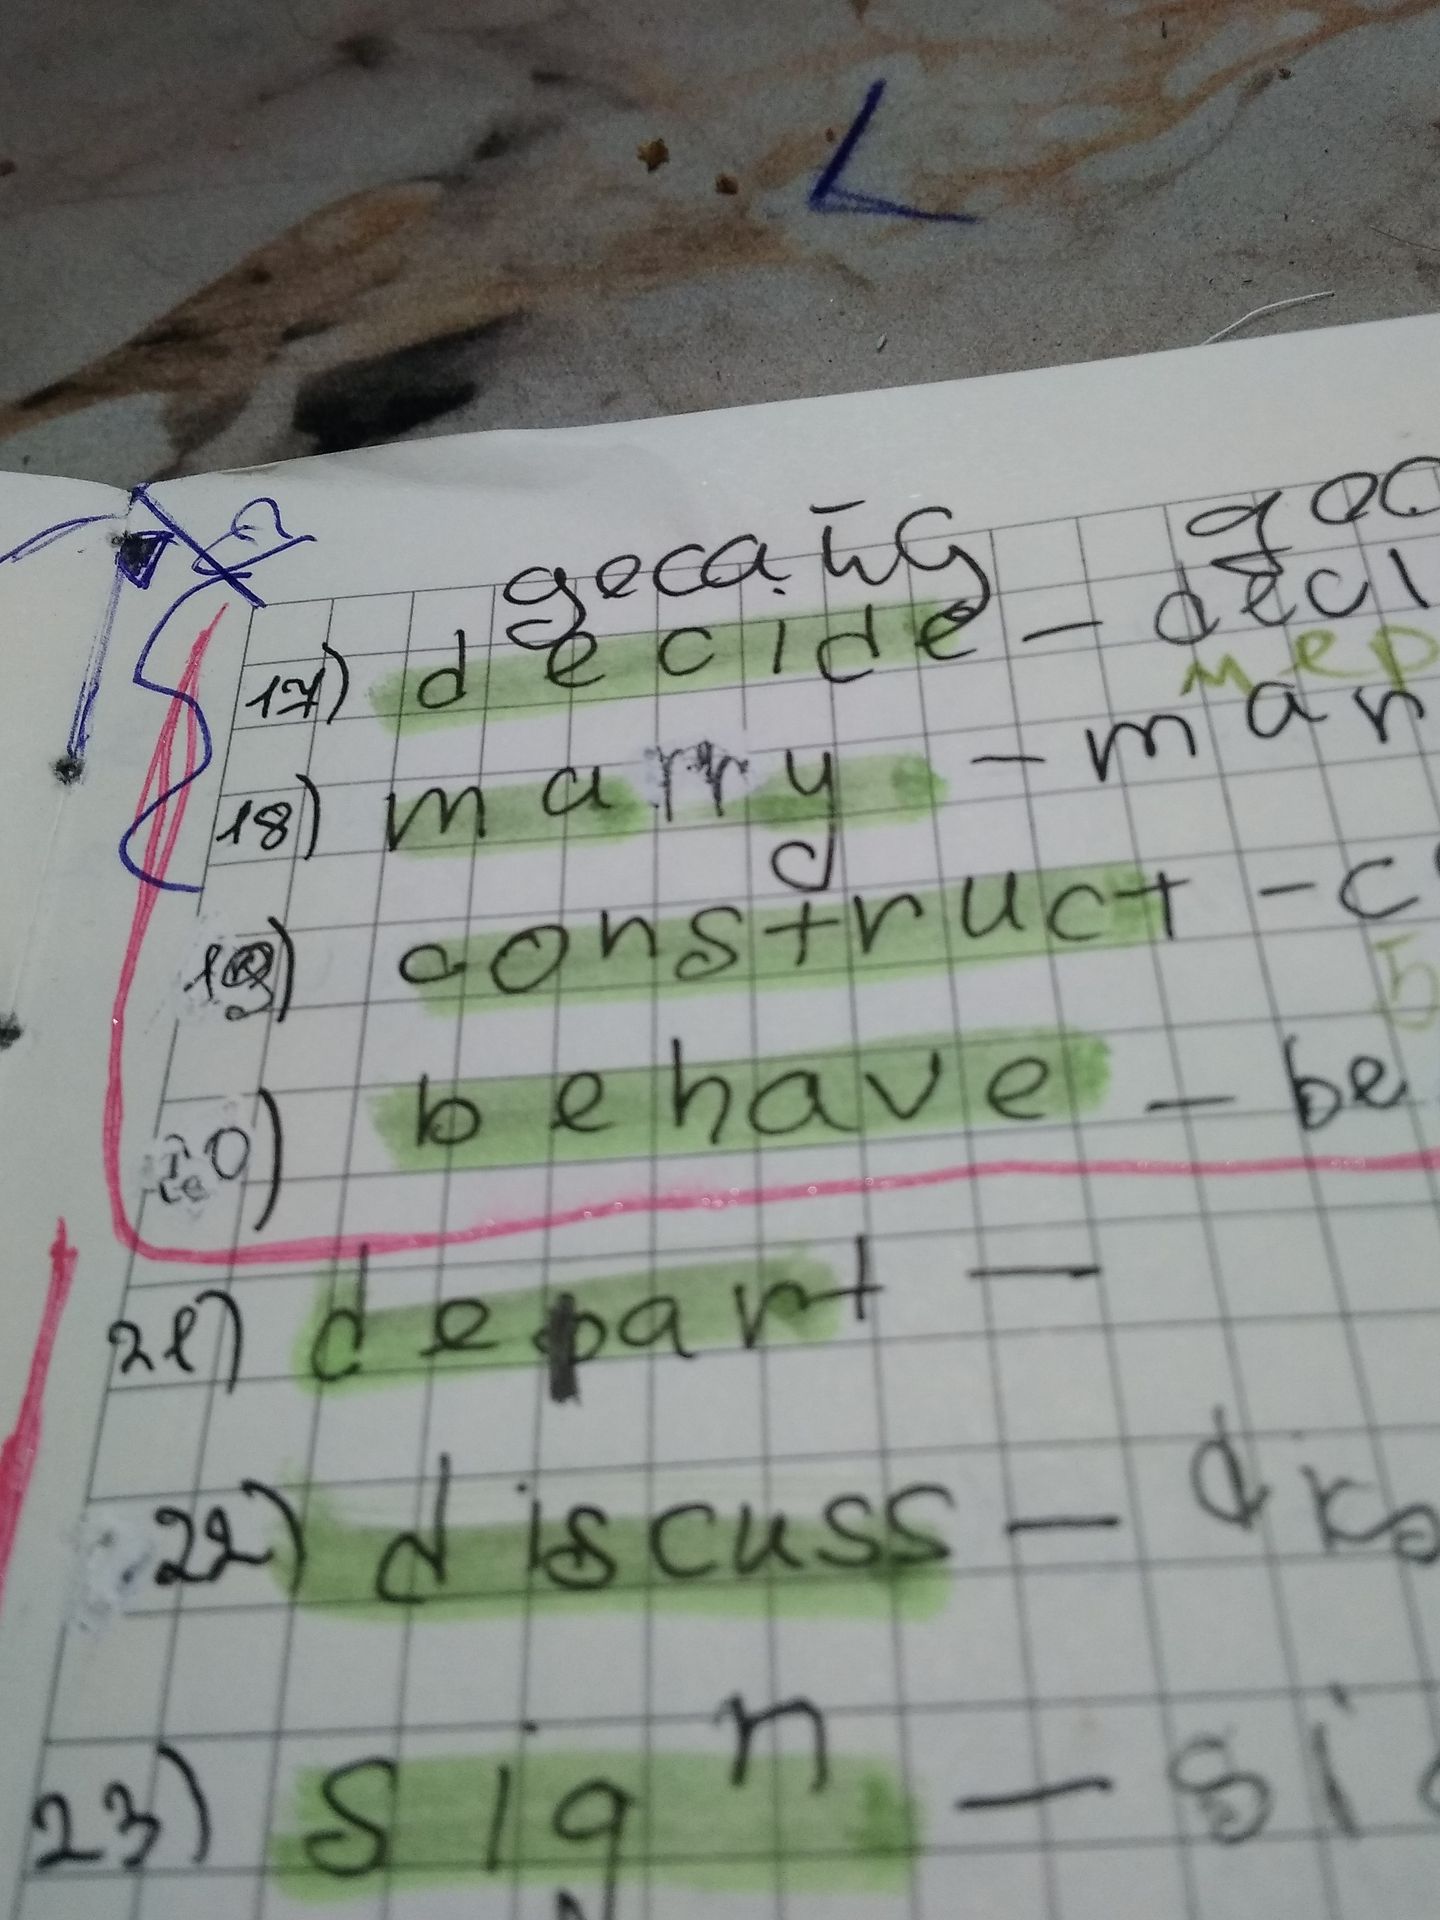 десайд
17) decide - deci
мер
18) marry - mar
19) construct - c
20) behave - be
21) depart -
22) discuss -
23) sign - si